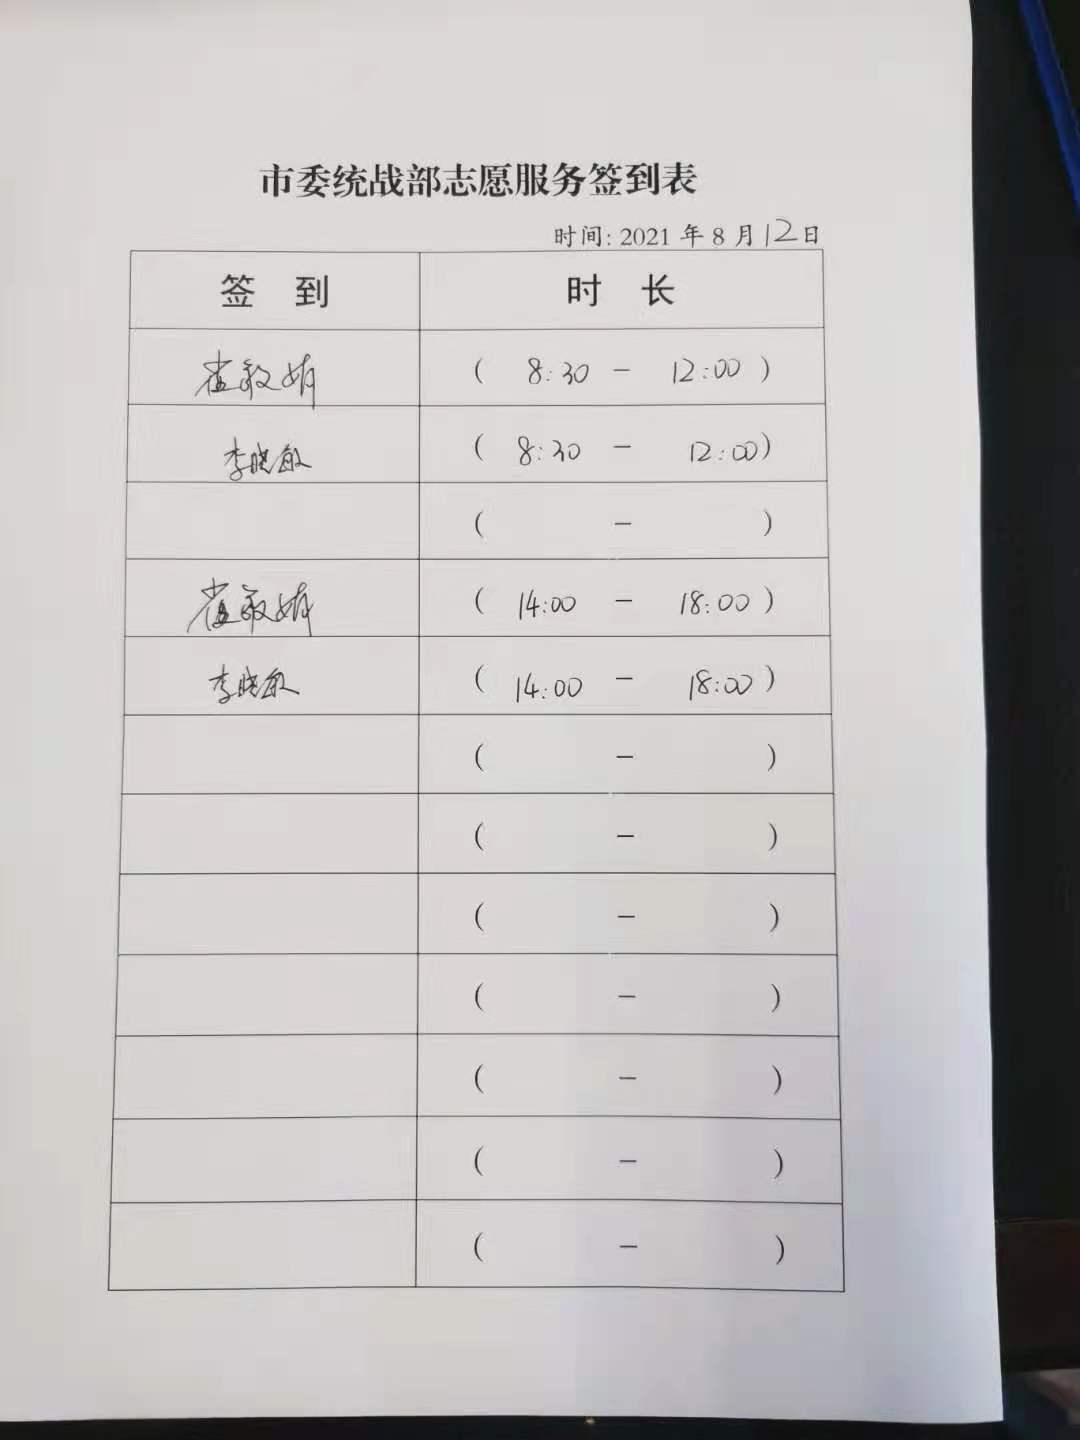 市委统战部志愿服务签到表
时间: 2021 年 8 月 12 日
签 到 时 长
崔敏娟 ( 8:30 - 12:00 )
李晓敏 ( 8:30 - 12:00 )
( - )
崔敏娟 ( 14:00 - 18:00 )
李晓敏 ( 14:00 - 18:00 )
( - )
( - )
( - )
( - )
( - )
( - )
( - )